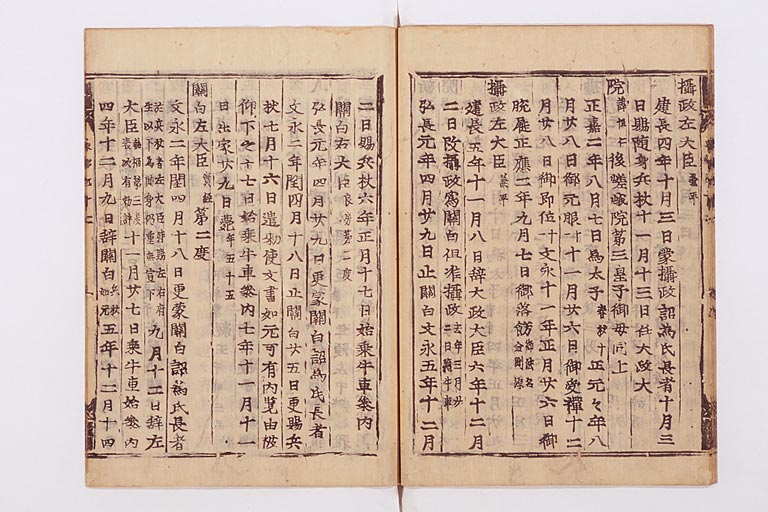 攝政左大臣兼平
建長四年十月三日蒙攝政詔為氏長者十月三
日賜随身兵杖十一月十三日任大政大
院諱恒仁後嵯峨院第三皇子御母同上
正嘉二年八月七日為太子春秋十正元々年八
月廿八日御元服十一月廿六日御受禪十二
月廿八日御即位文永十一年正月廿六日御
脱屣正應二年九月七日御落餝法名金剛源
攝政左大臣兼平
建長五年十一月八日辞大政大臣六年十二月
二日改攝政為關白但准攝政
弘長元年四月廿九日止關白文永五年十二月
二日賜兵杖六年正月十七日始乗牛車參内
關白右大臣良實第二度
弘長元年四月廿九日更蒙關白詔為氏長者
文永二年閏四月十八日止關白廿五日更賜兵
杖七月十六日遣勅使文書如元可有内覧由被
仰下之十七日始乗牛車參内七年十一月十一
日出家廿九日薨年五十五
關白左大臣實經第二度
文永二年閏四月十八日更蒙關白詔為氏長者
九月十二日辞左
大臣十一月廿七日乗牛車始參内
四年十二月九日辞關白兵杖如元五年十二月十四